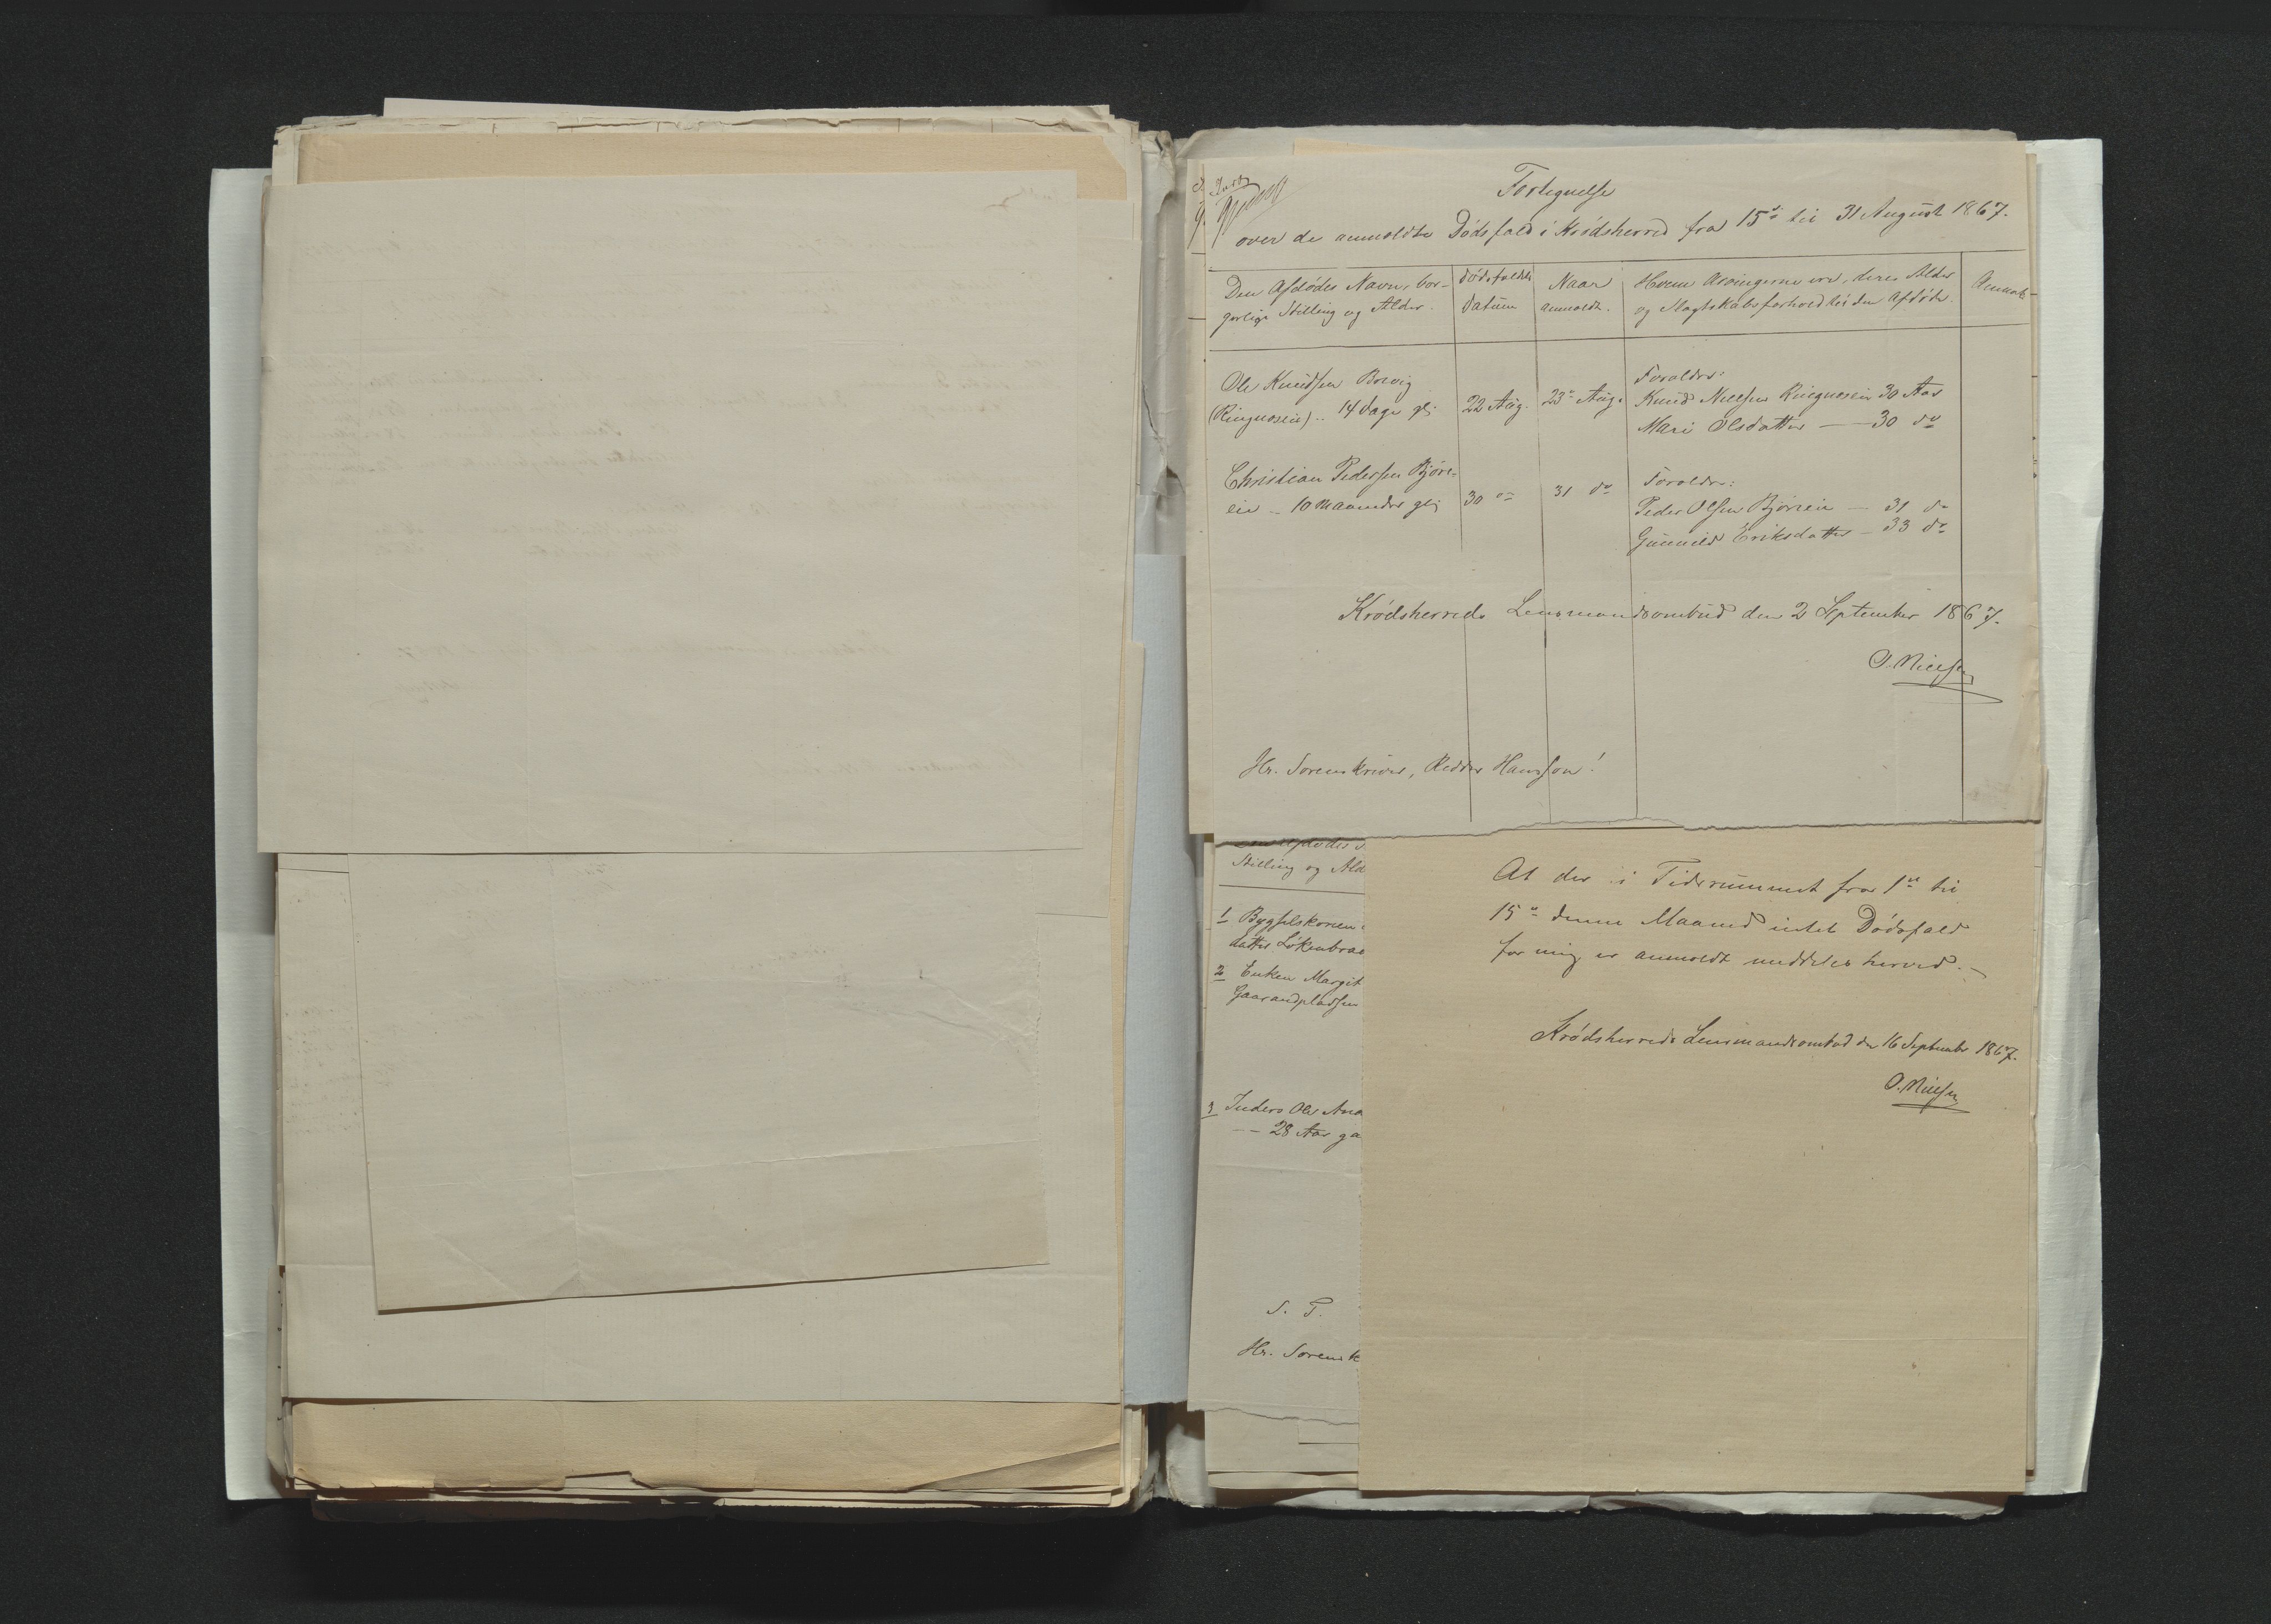 Fortegnelse
over de anmeldte Dødsfald i Krødsherred fra 15de til 31 August 1867.
Den Afdødes Navn, bor-
gerlige Stilling og Alder.
Dødsfaldets
Datum
Naar
anmeldt.
Hvem Arvingerne ere, deres Alder
og Slægtskabsforhold til den Afdøde.
Anmærk-
Ole Knudsen Borvig
(Ringneseie) .. 14 Dage gl;
22 Aug.
23de Aug.
Forældre:
Knud Nielsen Ringneseie 30 Aar
Mari Olsdatter — 30 do
Christian Pedersen Bjøre-
eie — 10 Maaneder gl;
30 do
31 do
Forældre:
Peder Olsen Bjøreeie — 31 do
Gunnild Eriksdatter — 33 do
Krødsherreds Lensmandsombud den 2 September 1867.
O. Nielsen
Hr. Sorenskriver, Ridder Hansson!
Stilling og Ald
1 Bygselskonen
datter Løkenbraa
2 Enken Margit
Gaarandpladsen
3 Inders Ole And
-- 28 Aar ga
S. T.
Hr. Sorensk
At der i Tidsrummet fra 1ste til
15de denne Maaned intet Dødsfald
for mig er anmeldt meddeles herved.-
Krødsherreds Lensmandsombud den 16 September 1867.
O. Nielsen